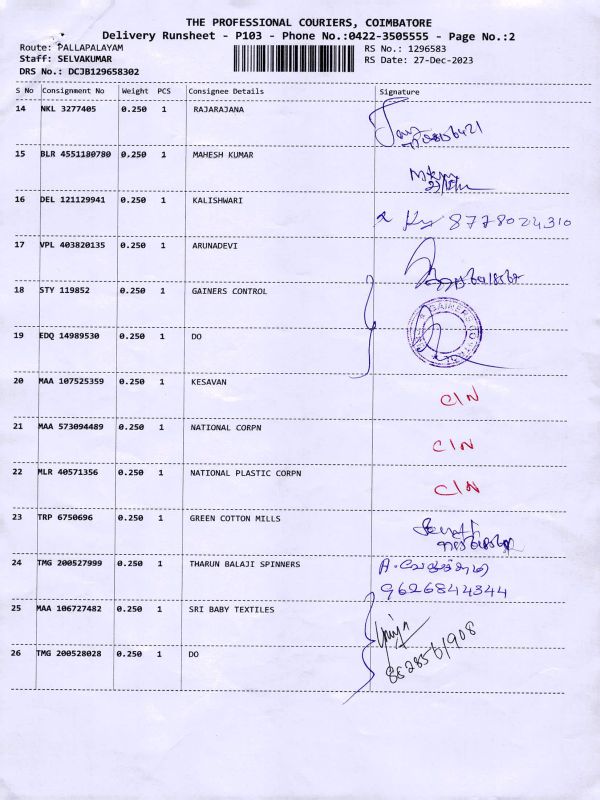 THE PROFESSIONAL COURIERS, COIMBATORE
Delivery Runsheet - P103 - Phone No.:0422-3505555 - Page No.:2
Route: PALLAPALAYAM RS No.: 1296583
Staff: SELVAKUMAR RS Date: 27-Dec-2023
DRS No.: DCJB129658302
S No Consignment No Weight PCS Consignee Details Signature
14 NKL 3277405 0.250 1 RAJARAJANA
15 BLR 4551180780 0.250 1 MAHESH KUMAR
16 DEL 121129941 0.250 1 KALISHWARI 8778024310
17 VPL 403820135 0.250 1 ARUNADEVI
18 STY 119852 0.250 1 GAINERS CONTROL
19 EDQ 14989530 0.250 1 DO
20 MAA 107525359 0.250 1 KESAVAN C/N
21 MAA 573094489 0.250 1 NATIONAL CORPN C/N
22 MLR 40571356 0.250 1 NATIONAL PLASTIC CORPN C/N
23 TRP 6750696 0.250 1 GREEN COTTON MILLS
24 TMG 200527999 0.250 1 THARUN BALAJI SPINNERS
9626844344
25 MAA 106727482 0.250 1 SRI BABY TEXTILES
26 TMG 200528028 0.250 1 DO